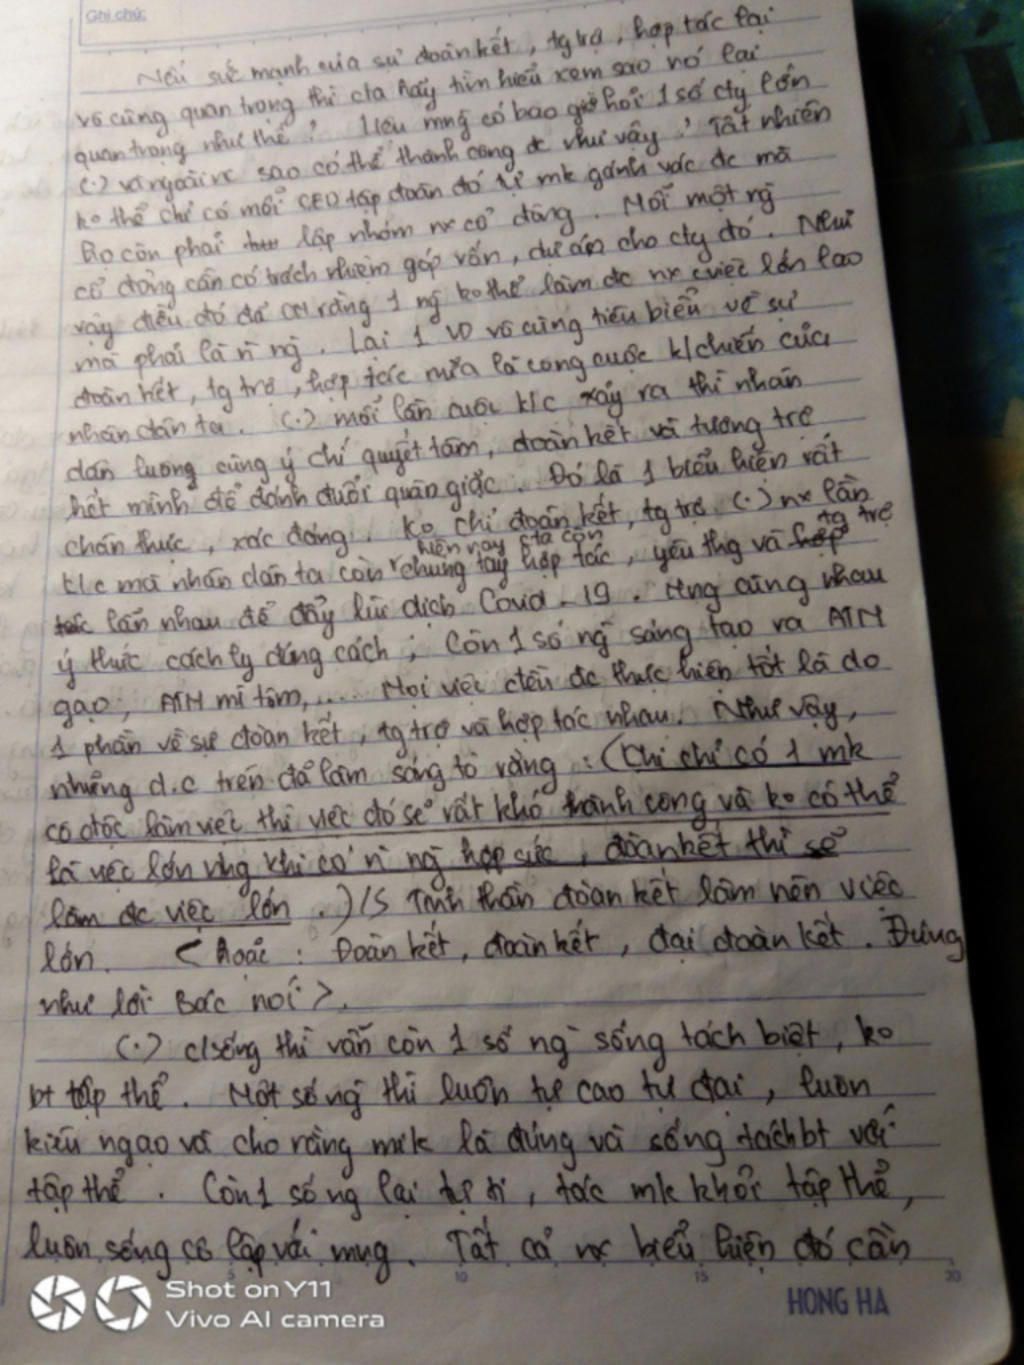 Ghi chú:
Nếu sức mạnh của sự đoàn kết, tg trợ, hợp tác lại
vô cùng quan trọng thì cta hãy tìm hiểu xem sao nó lại
quan trọng như thế? Liệu mng có bao giờ hỏi 1 số cty lớn
(.) và ngoài nc sao có thể thành công đc như vậy? Tất nhiên
ko thể chỉ có mỗi CEO tập đoàn đó tự mk gánh vác đc mà
họ còn phải lập nhóm nx cổ đông. Mỗi một ng
cổ đông cần có trách nhiệm góp vốn, dự án cho cty đó. Như
vậy điều đó đã cm rằng 1 ng ko thể làm đc nx việc lớn lao
mà phải là n ng. Lại 1 VD vô cùng tiêu biểu về sự
đoàn kết, tg trợ, hợp tác nữa là công cuộc k/chiến của
nhân dân ta. (.) mỗi lần cuộc k/c xảy ra thì nhân
dân luông cùng ý chí quyết tâm, đoàn kết và tương trợ
hết mình để đánh đuổi quân giặc. Đó là 1 biểu hiện rất
chân thực, xác đáng. Ko chỉ đoàn kết, tg trợ (.) nx lần
k/c mà nhân dân ta còn hiện nay cta còn chung tay hợp tác, yêu thg và hợp tg trợ
tác lẫn nhau để đẩy lùi dịch Covid-19. Mng cùng nhau
ý thức cách ly đúng cách; Còn 1 số ng sáng tạo ra ATM
gạo, ATM mì tôm,... Mọi việc đều đc thực hiện tốt là do
1 phần về sự đoàn kết, tg trợ và hợp tác nhau. Như vậy,
những d.c trên đã làm sáng tỏ rằng: (Khi chỉ có 1 mk
cô độc làm việc thì việc đó sẽ rất khó thành công và ko có thể
là việc lớn nhg khi có n ng hợp sức, đoàn kết thì sẽ
làm đc việc lớn.)/S Tinh thần đoàn kết làm nên việc
lớn. <hoặc: Đoàn kết, đoàn kết, đại đoàn kết. Đúng
như lời Bác nói>.
(.) c/sống thì vẫn còn 1 số ng sống tách biệt, ko
bt tập thể. Một số ng thì luôn tự cao tự đại, luôn
kiêu ngạo và cho rằng mk là đúng và sống tách bt với
tập thể. Còn 1 số ng lại tự ti, tác mk khỏi tập thể,
luôn sống cô lập với mng. Tất cả nx biểu hiện đó cần
5 10 15 20
HONG HA
Shot on Y11
Vivo AI camera